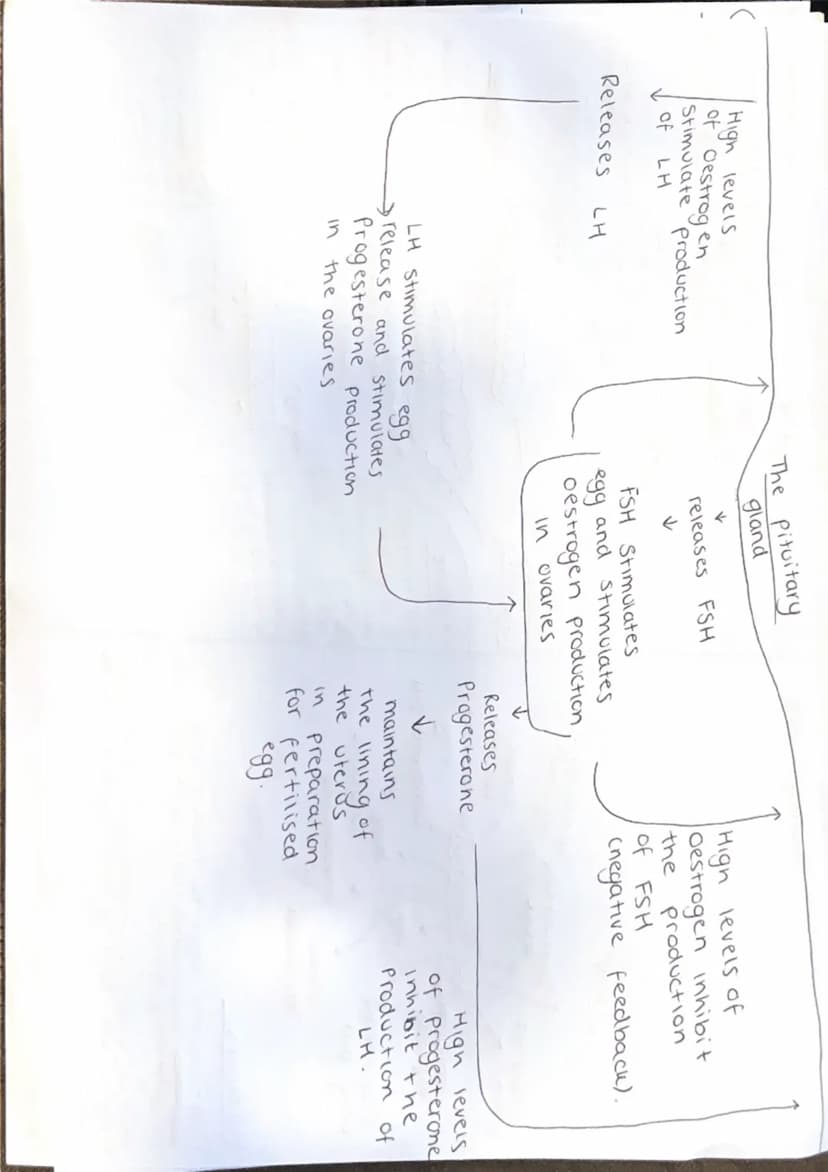 The pituitary
gland
High levels
of oestrogen
stimulate production
of LH
Releases LH
LH stimulates egg
release and stimulates
progesterone production
in the ovaries
releases FSH
FSH stimulates
egg and stimulates
oestrogen production
in ovaries
Releases
Progesterone
maintains
the lining of
the uterus
in preparation
for fertilised
egg.
High levels of
oestrogen inhibit
the production
of FSH
(negative feedback).
High levels
of progesterone
inhibit the
production of
LH.